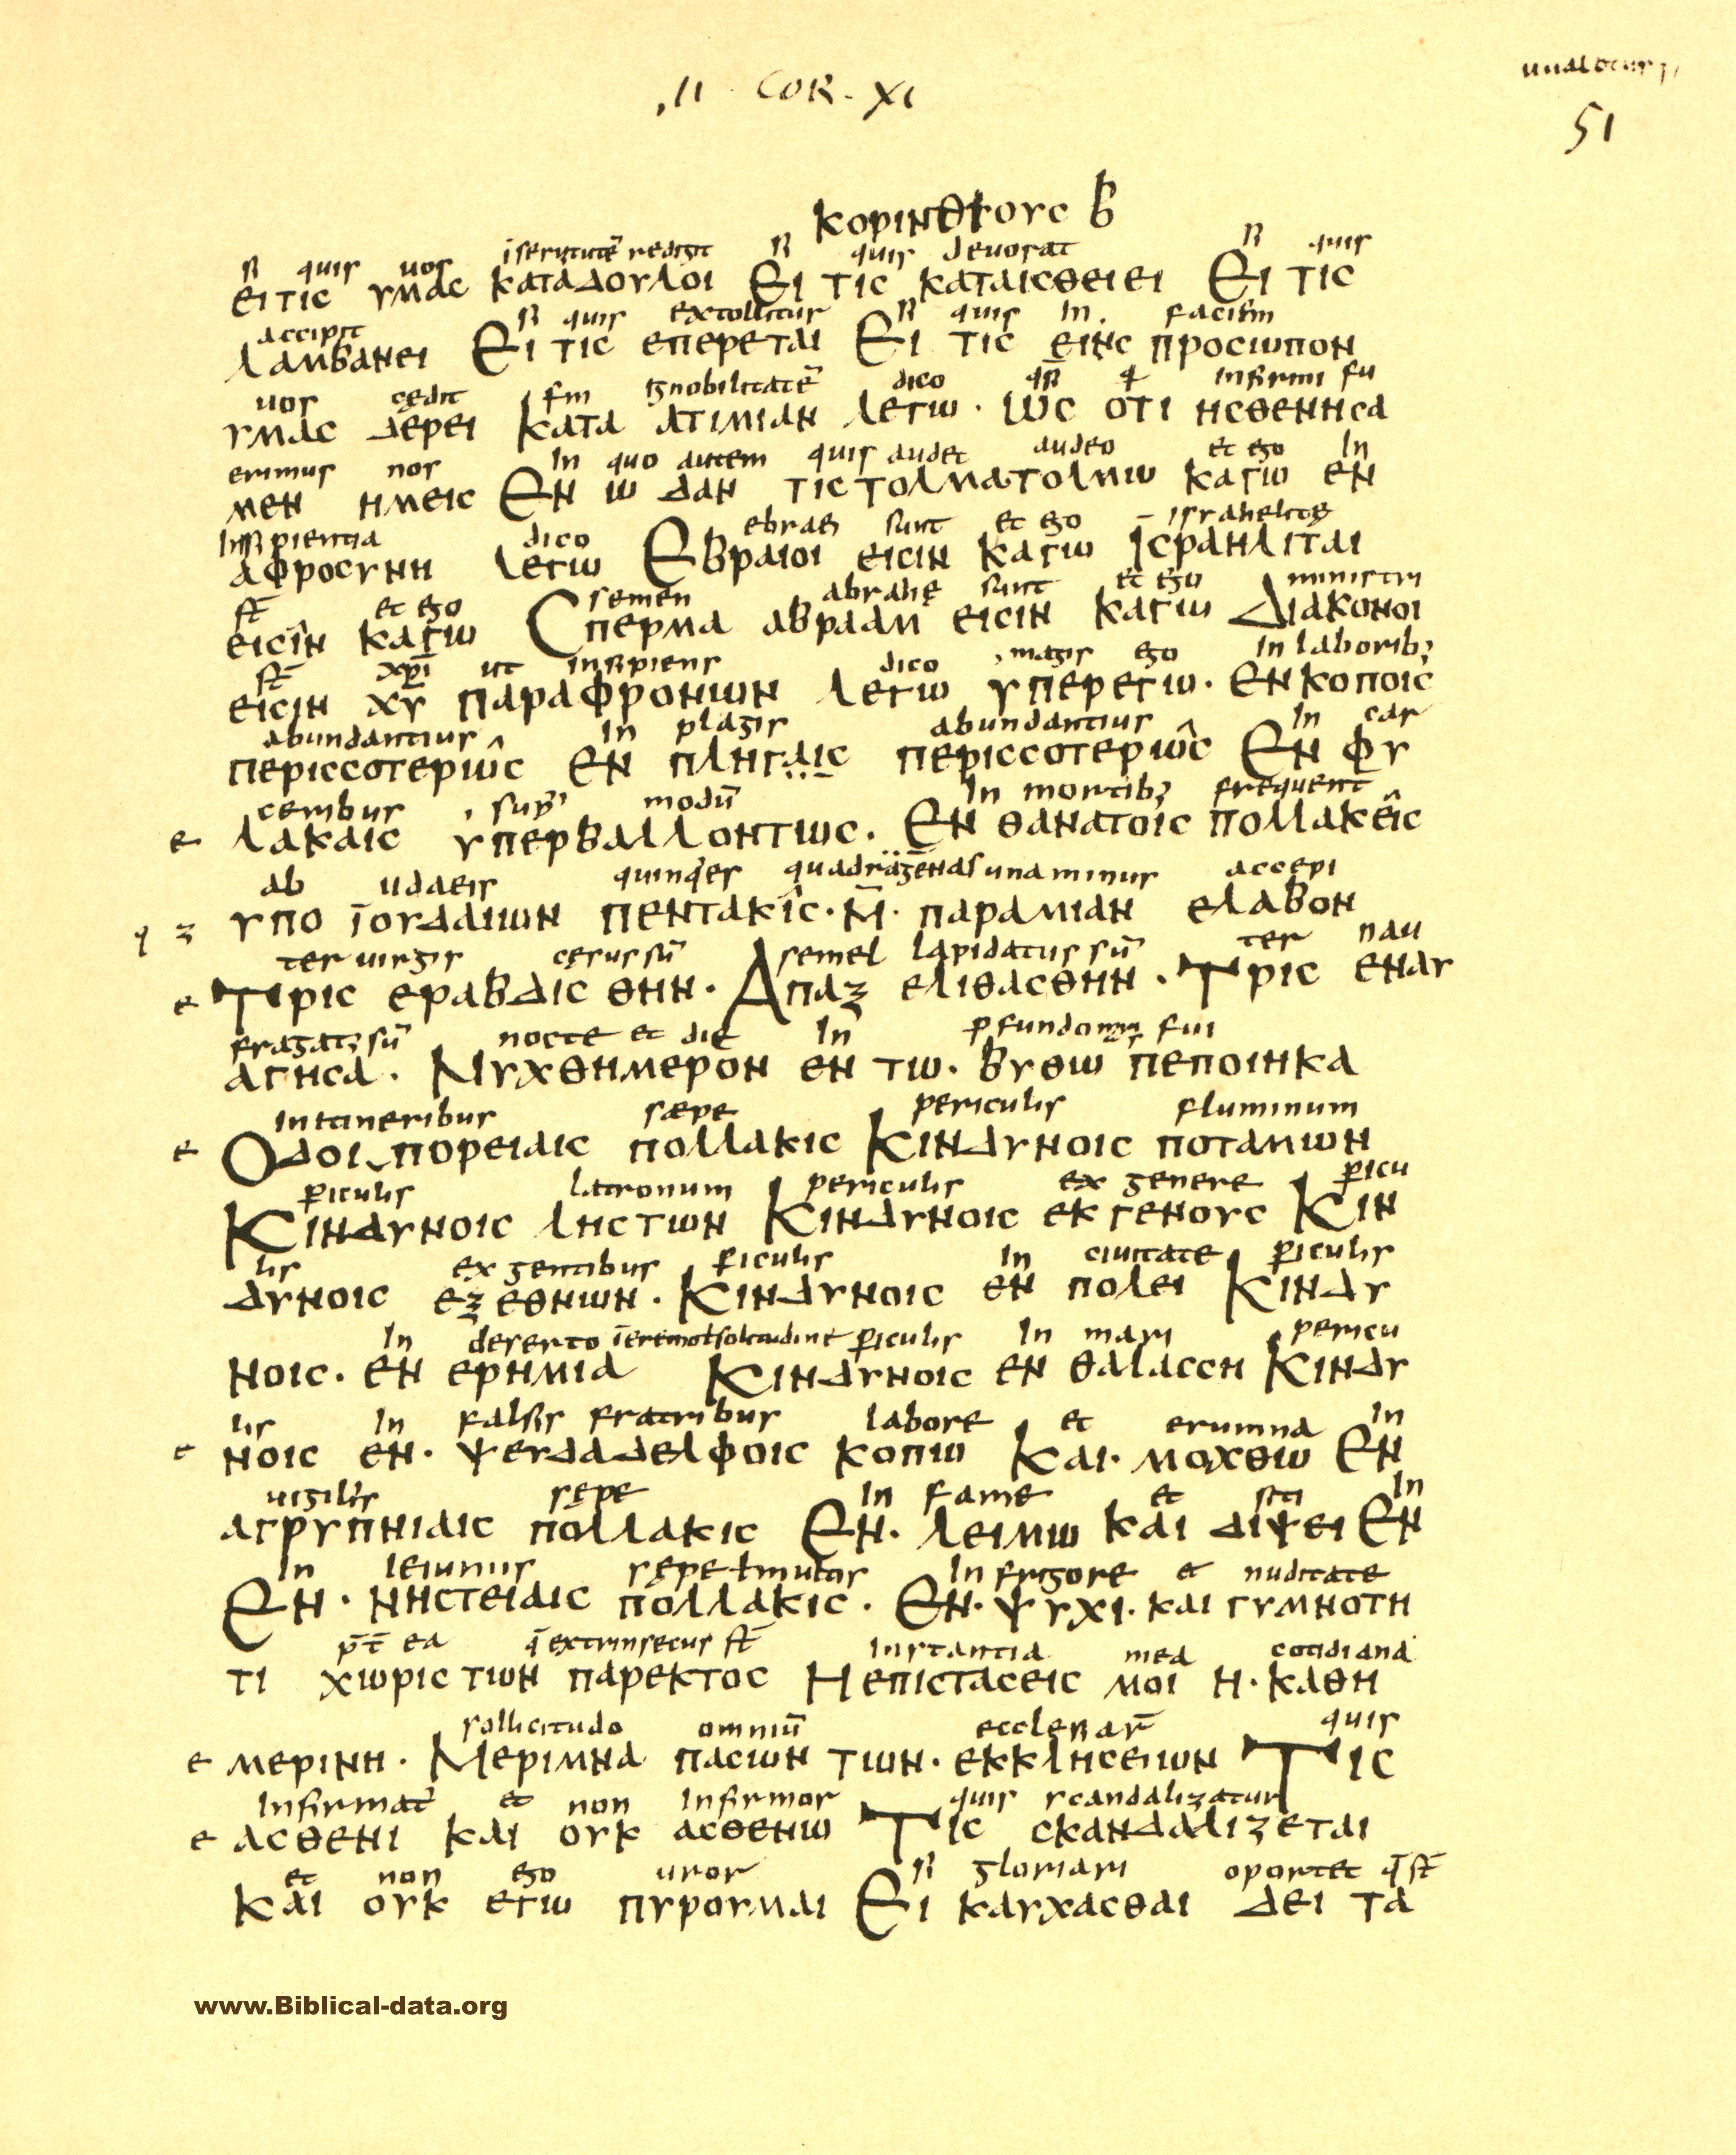 II COR. XI
51
κορινθιους β
si quis uos i seruitutē redigit si quis deuorat si quis
ειτις υμας καταδουλοι Ει τις καταισθειει Ει τις
accipit si quis extollitur si quis In faciem
λαμβανει Ει τις επερεται Ει τις εις προσωπον
uos cędit ignobilitatē dico infirmi fu
υμας δερει κατα ατιμιαν λεγω · Ως οτι ησθενησα
erimus nos In quo autem quis audet audeo et ego In
μεν ημεις Εν ω δαν τις τολματολμω καγω εν
Insipientia dico ebraei sunt et ego israhelitę
αφροσυνη λεγω Εβραιοι εισιν καγω Ισραηλιται
st̄ et ego semen abrahę sunt et ego ministri
εισιν καγω Σπερμα αβρααμ εισιν καγω Διακονοι
st̄ xp̄i ut insipiens dico magis ego In laborib;
εισιν χυ παραφρονων λεγω υπερεγω · εν κοποις
abundantius In plagis abundantius In car
περισσοτερως εν πληγαις περισσοτερως Εν φυ
ceribus sup modū In mortib; frequent
ε λακαις υπερβαλλοντως · Εν θανατοις πολλακεις
ab udaeis quinqies quadragenas una minus accepi
υπο ϊουδαιων πεντακις · μ̄ · παραμιαν ελαβον
ter uirgis cęsus sū semel lapidatus sū ter nau
ε Τρις εραβδις θην · Απαξ ελιθασθην · Τρις εναυ
fragat; sū nocte et die In pfundo fui
αγησα · Νυχθημερον εν τω · βυθω πεποιηκα
In itineribus sæpe periculis fluminum
ε Οδοι πορειαις πολλακις Κινδυνοις ποταμων
piculis latronum periculis ex genere picu
Κινδυνοις ληστων Κινδυνοις εκ γενους Κιν
lis ex gentibus piculis In ciuitate piculis
δυνοις εξ εθνων · Κινδυνοις εν πολει Κινδυ
In deserto piculis In mari pericu
νοις · εν ερημια Κινδυνοις εν θαλασση Κινδυ
lis In falsis fratribus labore et erumna In
ε νοις εν · ψευδαδελφοις κοπω Και · μοχθω Εν
uigiliis sępe In fame et siti In
αγρυπνιαις πολλακις Εν · λειμω και διψει Εν
In ieiuniis sępe In frigore et nuditate
Εν · νηστειαις πολλακις · Εν · ψυχι · και γυμνοτη
p̄t ea q̄ extrinsecus st̄ Instantia mea cotidiana
τι χωρις των παρεκτος Η επιστασεις μοι η · καθη
sollicitudo omniū ecclesiar̄ quis
ε μερινη · Μεριμνα πασων των · εκκλησειων Τις
Infirmat̄ et non Infirmor quis scandalizatur
ε ασθενι και ουκ ασθενω Τις σκανδαλιζεται
et non ego uror si gloriari oportet q̄ st̄
και ουκ εγω πυρουμαι Ει καυχασθαι δει τα
www.Biblical-data.org